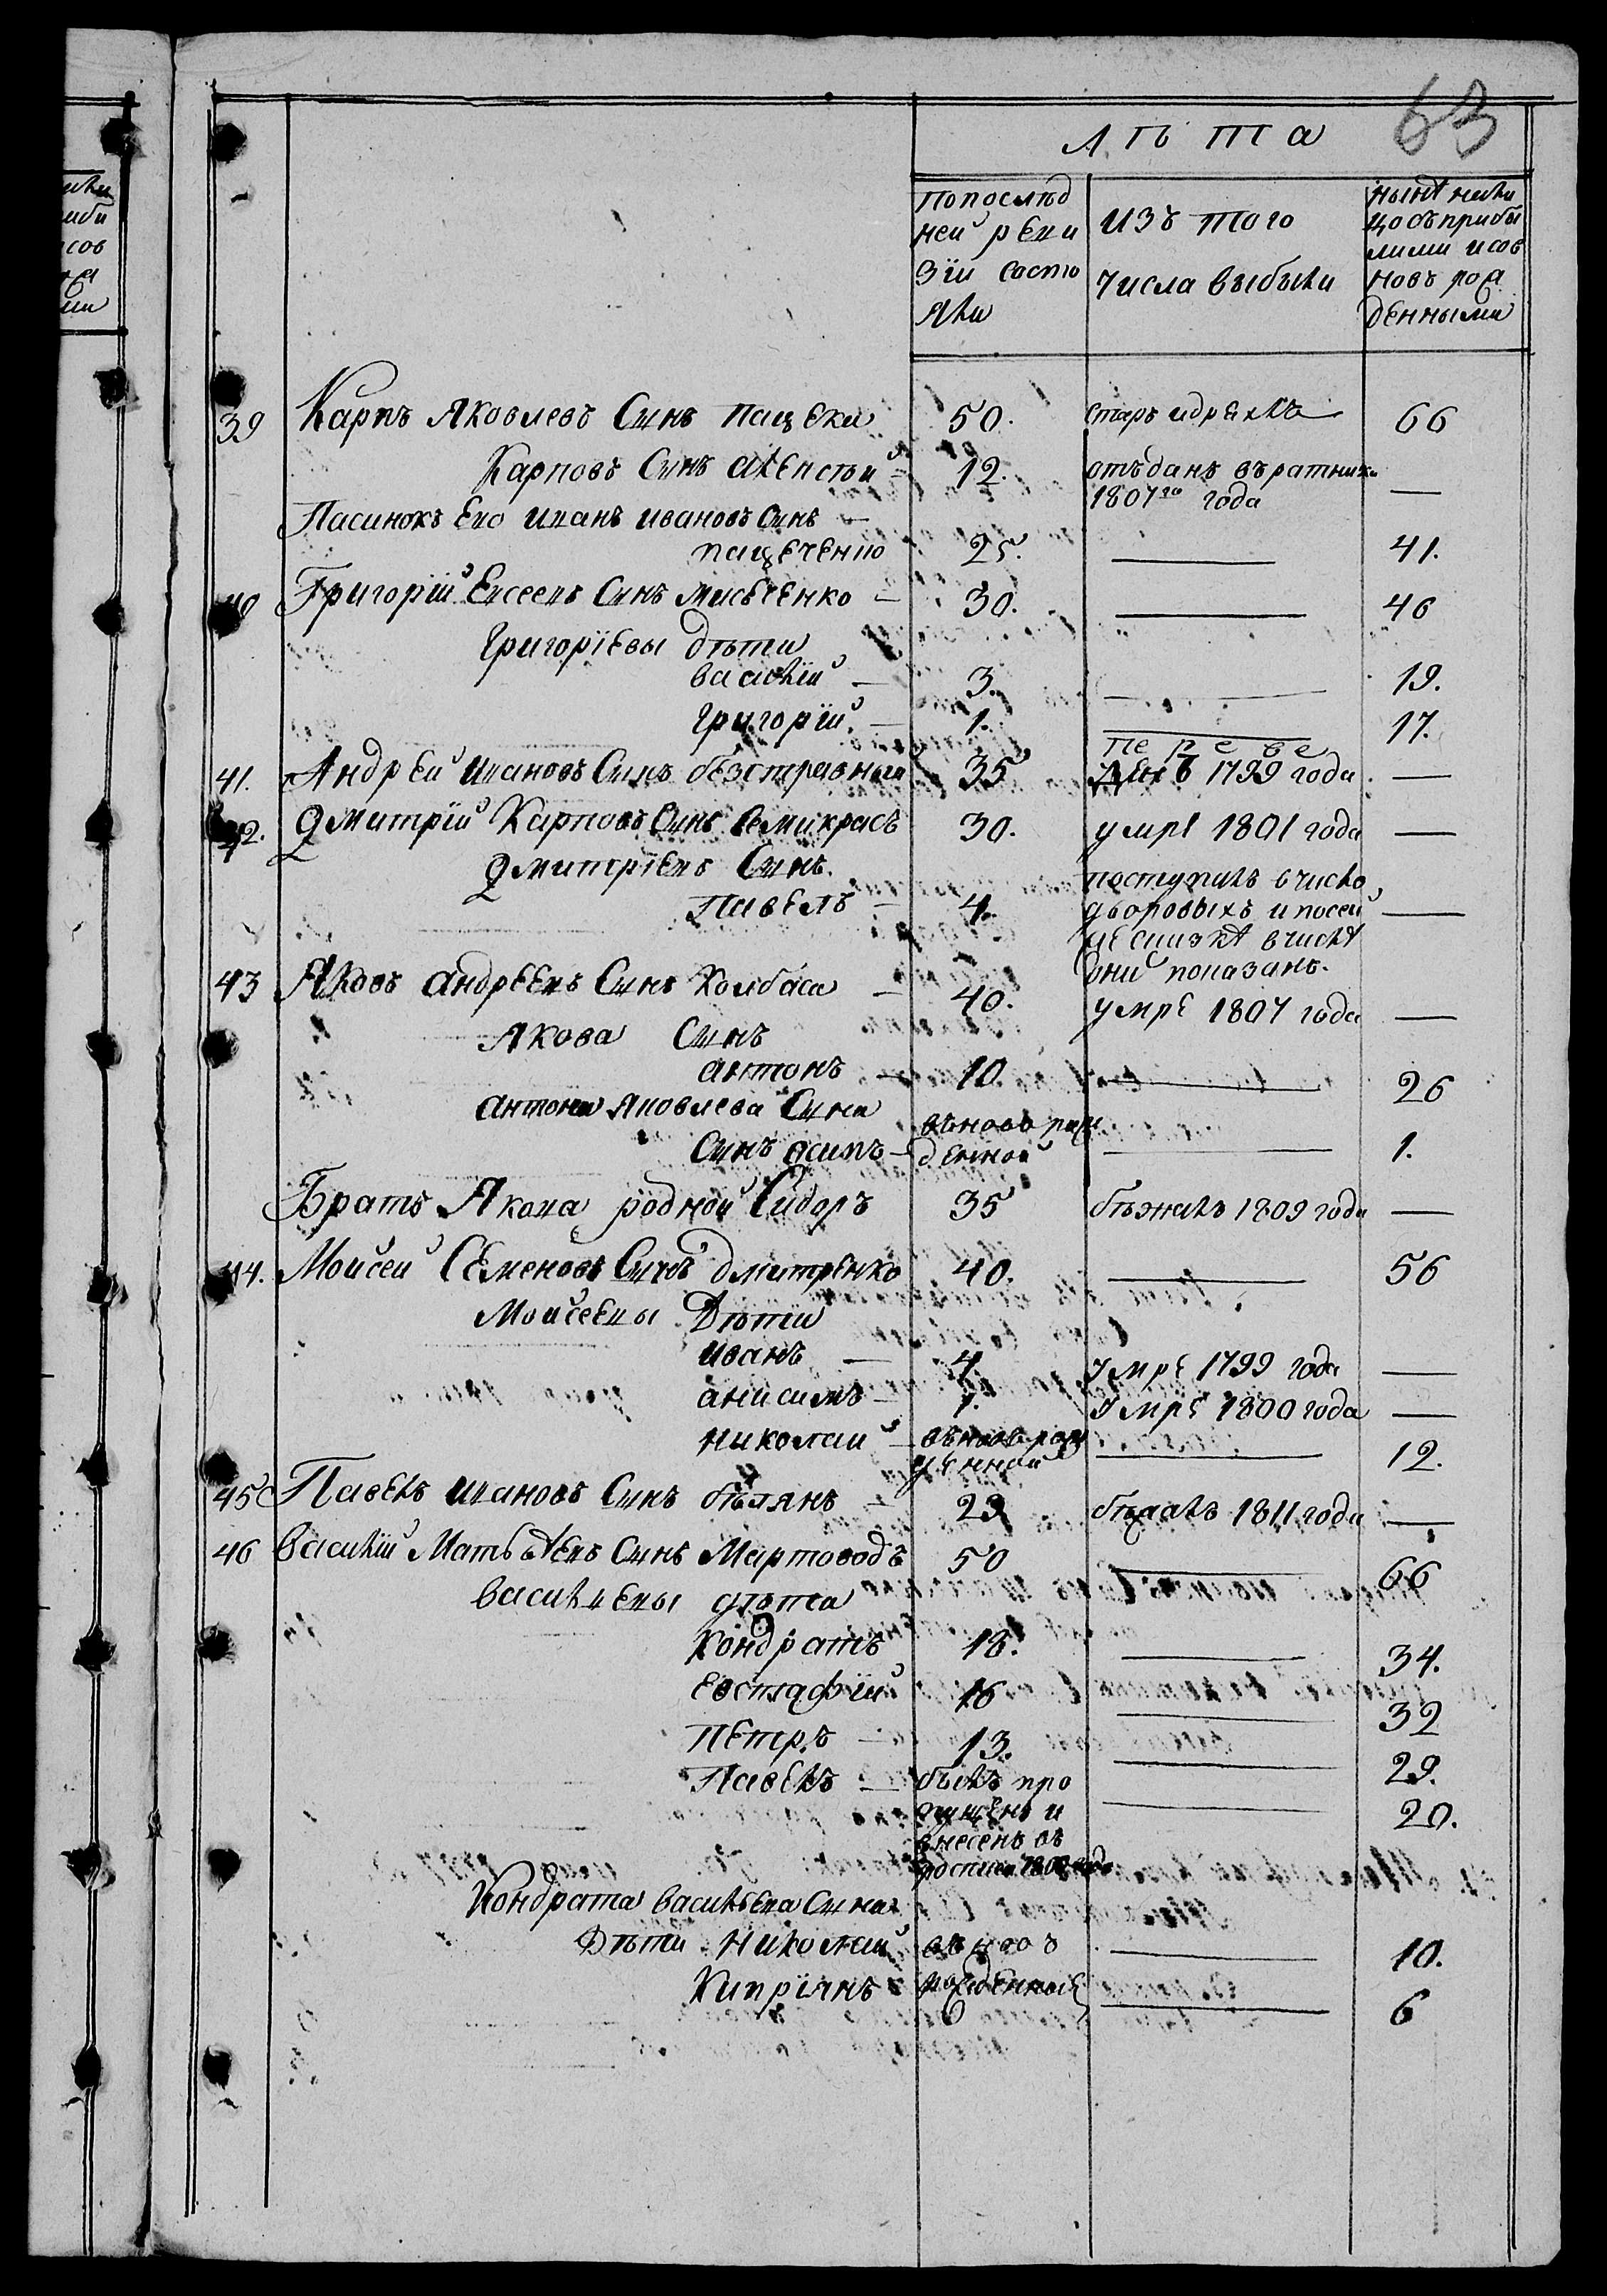 63
лѣта
попослѣд
ней реви
зіи состо
яли
изъ того
числа выбыли
нынѣ
прибы
лыми
новь рож
денными
39 Карпъ Яковлевъ Сынъ Пацека 50. старъ идряхлъ 66
Карповъ Сынъ Алексѣй 12. отъданъ въратники —
1807го года
Пасинокъ Его Иванъ Ивановъ Сынъ —
пацеченко 25. — 41.
40 Григорій Евсеевъ Сынъ мисеченко — 30. — 46
Григоріевы дѣти
василій — 3. — 19.
григорій — 1. — 17.
пе ре ве
41. Андрей Ивановъ Сынъ безстравной 35 денъ 1799 года —
42. Дмитрій Карповъ Сынъ Семикрасъ 30. умре 1801 года —
Дмитріевъ Сынъ
Павелъ — 4. поступилъ вчисло
дворовыхъ и посей —
вчислѣ
оній показанъ.
43 Яковъ Андреевъ Сынъ Колбаса — 40. умре 1807 года —
Якова Сынъ
антонъ — 10. — 26
антона Яковлева Сына въновь раж
Сынъ осипъ — денной — 1.
Братъ Якова родной Сидоръ 35 бѣжалъ 1809 года —
44. Мойсей Семеновъ Сынъ дмитренко 40. — 56
Мойсеевы Дѣти
иванъ — 4 умре 1799 года —
анисимъ — 1. умре 1800 года —
николай — въновь рож
денной — 12.
45 Павелъ Ивановъ Сынъ бѣлянъ — 29 бѣжалъ 1811 года —
46 Василій Матьвѣевъ Сынъ Мартоводъ 50 — 66
Васильевы дѣти
Кондратъ 18. — 34.
Евстафій 16 — 32
Петръ — 13. — 29.
Павелъ — былъ про — 20.
пущенъ и
внесенъ въ
Кондрата васильева Сына
Дѣти Николай въновь — 10.
Кипріянъ рожденной — 6